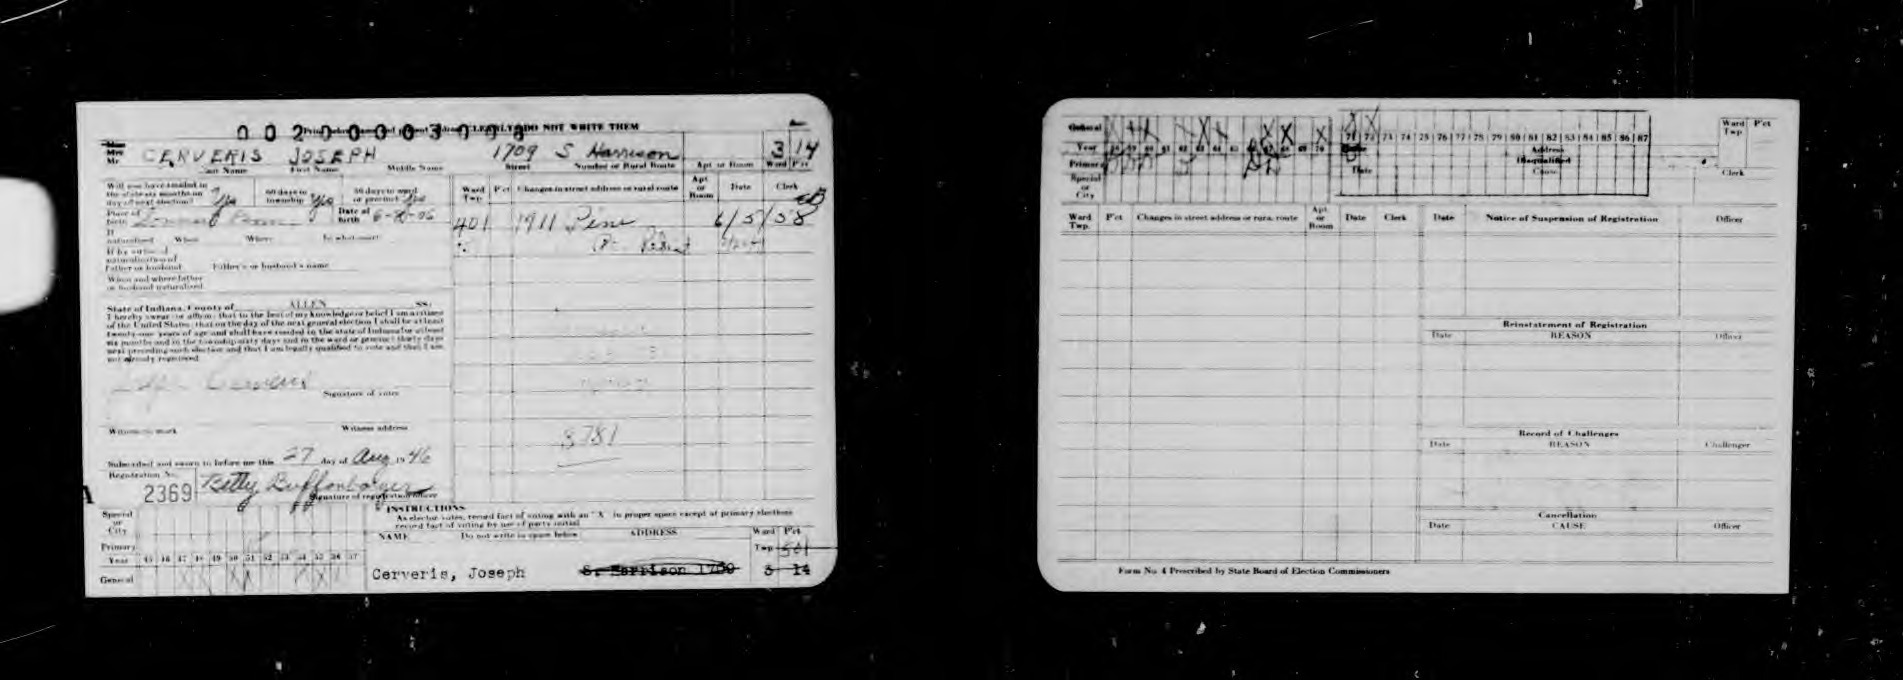 0020003098
CLEARLY DO NOT WRITE THEM
Mrs
Mr CERVERIS JOSEPH 1709 S Harrison 3 14
Last Name First Name Middle Name Street Number or Rural Route Apt or Room Ward P'ct
Will you have resided in the state six months on day of next election? Yes 60 days in township Yes 30 days in ward or precinct Yes
Place of birth Date of birth 6- -06
If naturalized When Where In what court
If by virtue of naturalization of Father or husband Father's or husband's name
When and where father or husband naturalized
Ward Twp. P'ct Changes in street address or rural route Apt or Room Date Clerk
401 1911 Pine 6/5/58
State of Indiana, County of ALLEN SS:
I hereby swear or affirm that to the best of my knowledge or belief I am a citizen
of the United States; that on the day of the next general election I shall be at least
twenty-one years of age and shall have resided in the state of Indiana for at least
six months and in the township sixty days and in the ward or precinct thirty days
next preceding such election and that I am legally qualified to vote and that I am
not already registered
Cerveris
Signature of voter
Witness to mark Witness address
8781
Subscribed and sworn to before me this 27 day of Aug 1946
Registration No.
2369 Betty Buffenbarger
Signature of registration officer
INSTRUCTIONS
As elector votes, record fact of voting with an "X" in proper space except at primary elections
record fact of voting by use of party initial
NAME Do not write in space below ADDRESS Ward P'ct
Twp
Cerveris, Joseph S. Harrison 1709 3 14
Special or City
Primary
Year 45 46 47 48 49 50 51 52 53 54 55 56 57
General
General
Year 58 59 60 61 62 63 64 65 66 67 68 69 70 71 72 73 74 75 76 77 78 79 80 81 82 83 84 85 86 87
Primary
Special or City
Address
Disqualified
Date Cause
Ward Twp P'ct
Clerk
Ward Twp. P'ct Changes in street address or rural route Apt or Room Date Clerk Date Notice of Suspension of Registration Officer
Reinstatement of Registration
Date REASON Officer
Record of Challenges
Date REASON Challenger
Cancellation
Date CAUSE Officer
Form No. 4 Prescribed by State Board of Election Commissioners